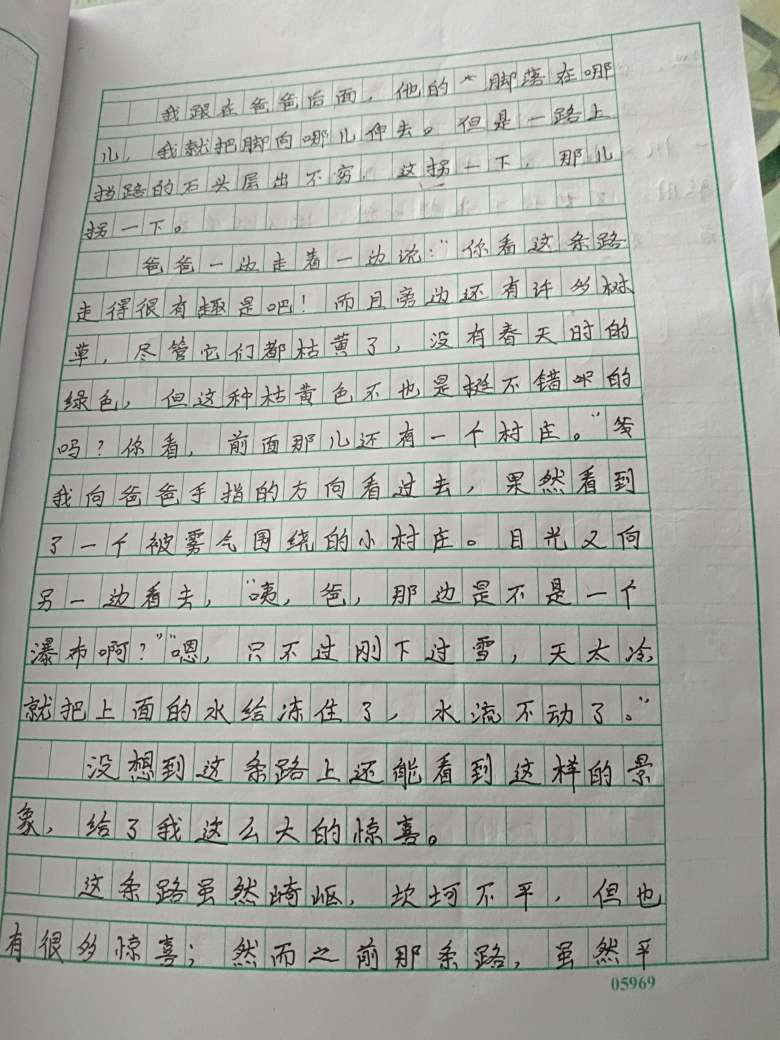 我跟在爸爸后面，他的脚落在哪
儿，我就把脚向哪儿伸去。但是一路上
挡路的石头层出不穷，这拐一下，那儿
拐一下。
爸爸一边走着一边说：“你看这条路
走得很有趣是吧！而且旁边还有许多树
草，尽管它们都枯黄了，没有春天时的
绿色，但这种枯黄色不也是挺不错的
吗？你看，前面那儿还有一个村庄。”
我向爸爸手指的方向看过去，果然看到
了一个被雾气围绕的小村庄。目光又向
另一边看去，“咦，爸，那边是不是一个
瀑布啊？”“嗯，只不过刚下过雪，天太冷
就把上面的水给冻住了，水流不动了。”
没想到这条路上还能看到这样的景
象，给了我这么大的惊喜。
这条路虽然崎岖，坎坷不平，但也
有很多惊喜；然而之前那条路，虽然平
05969